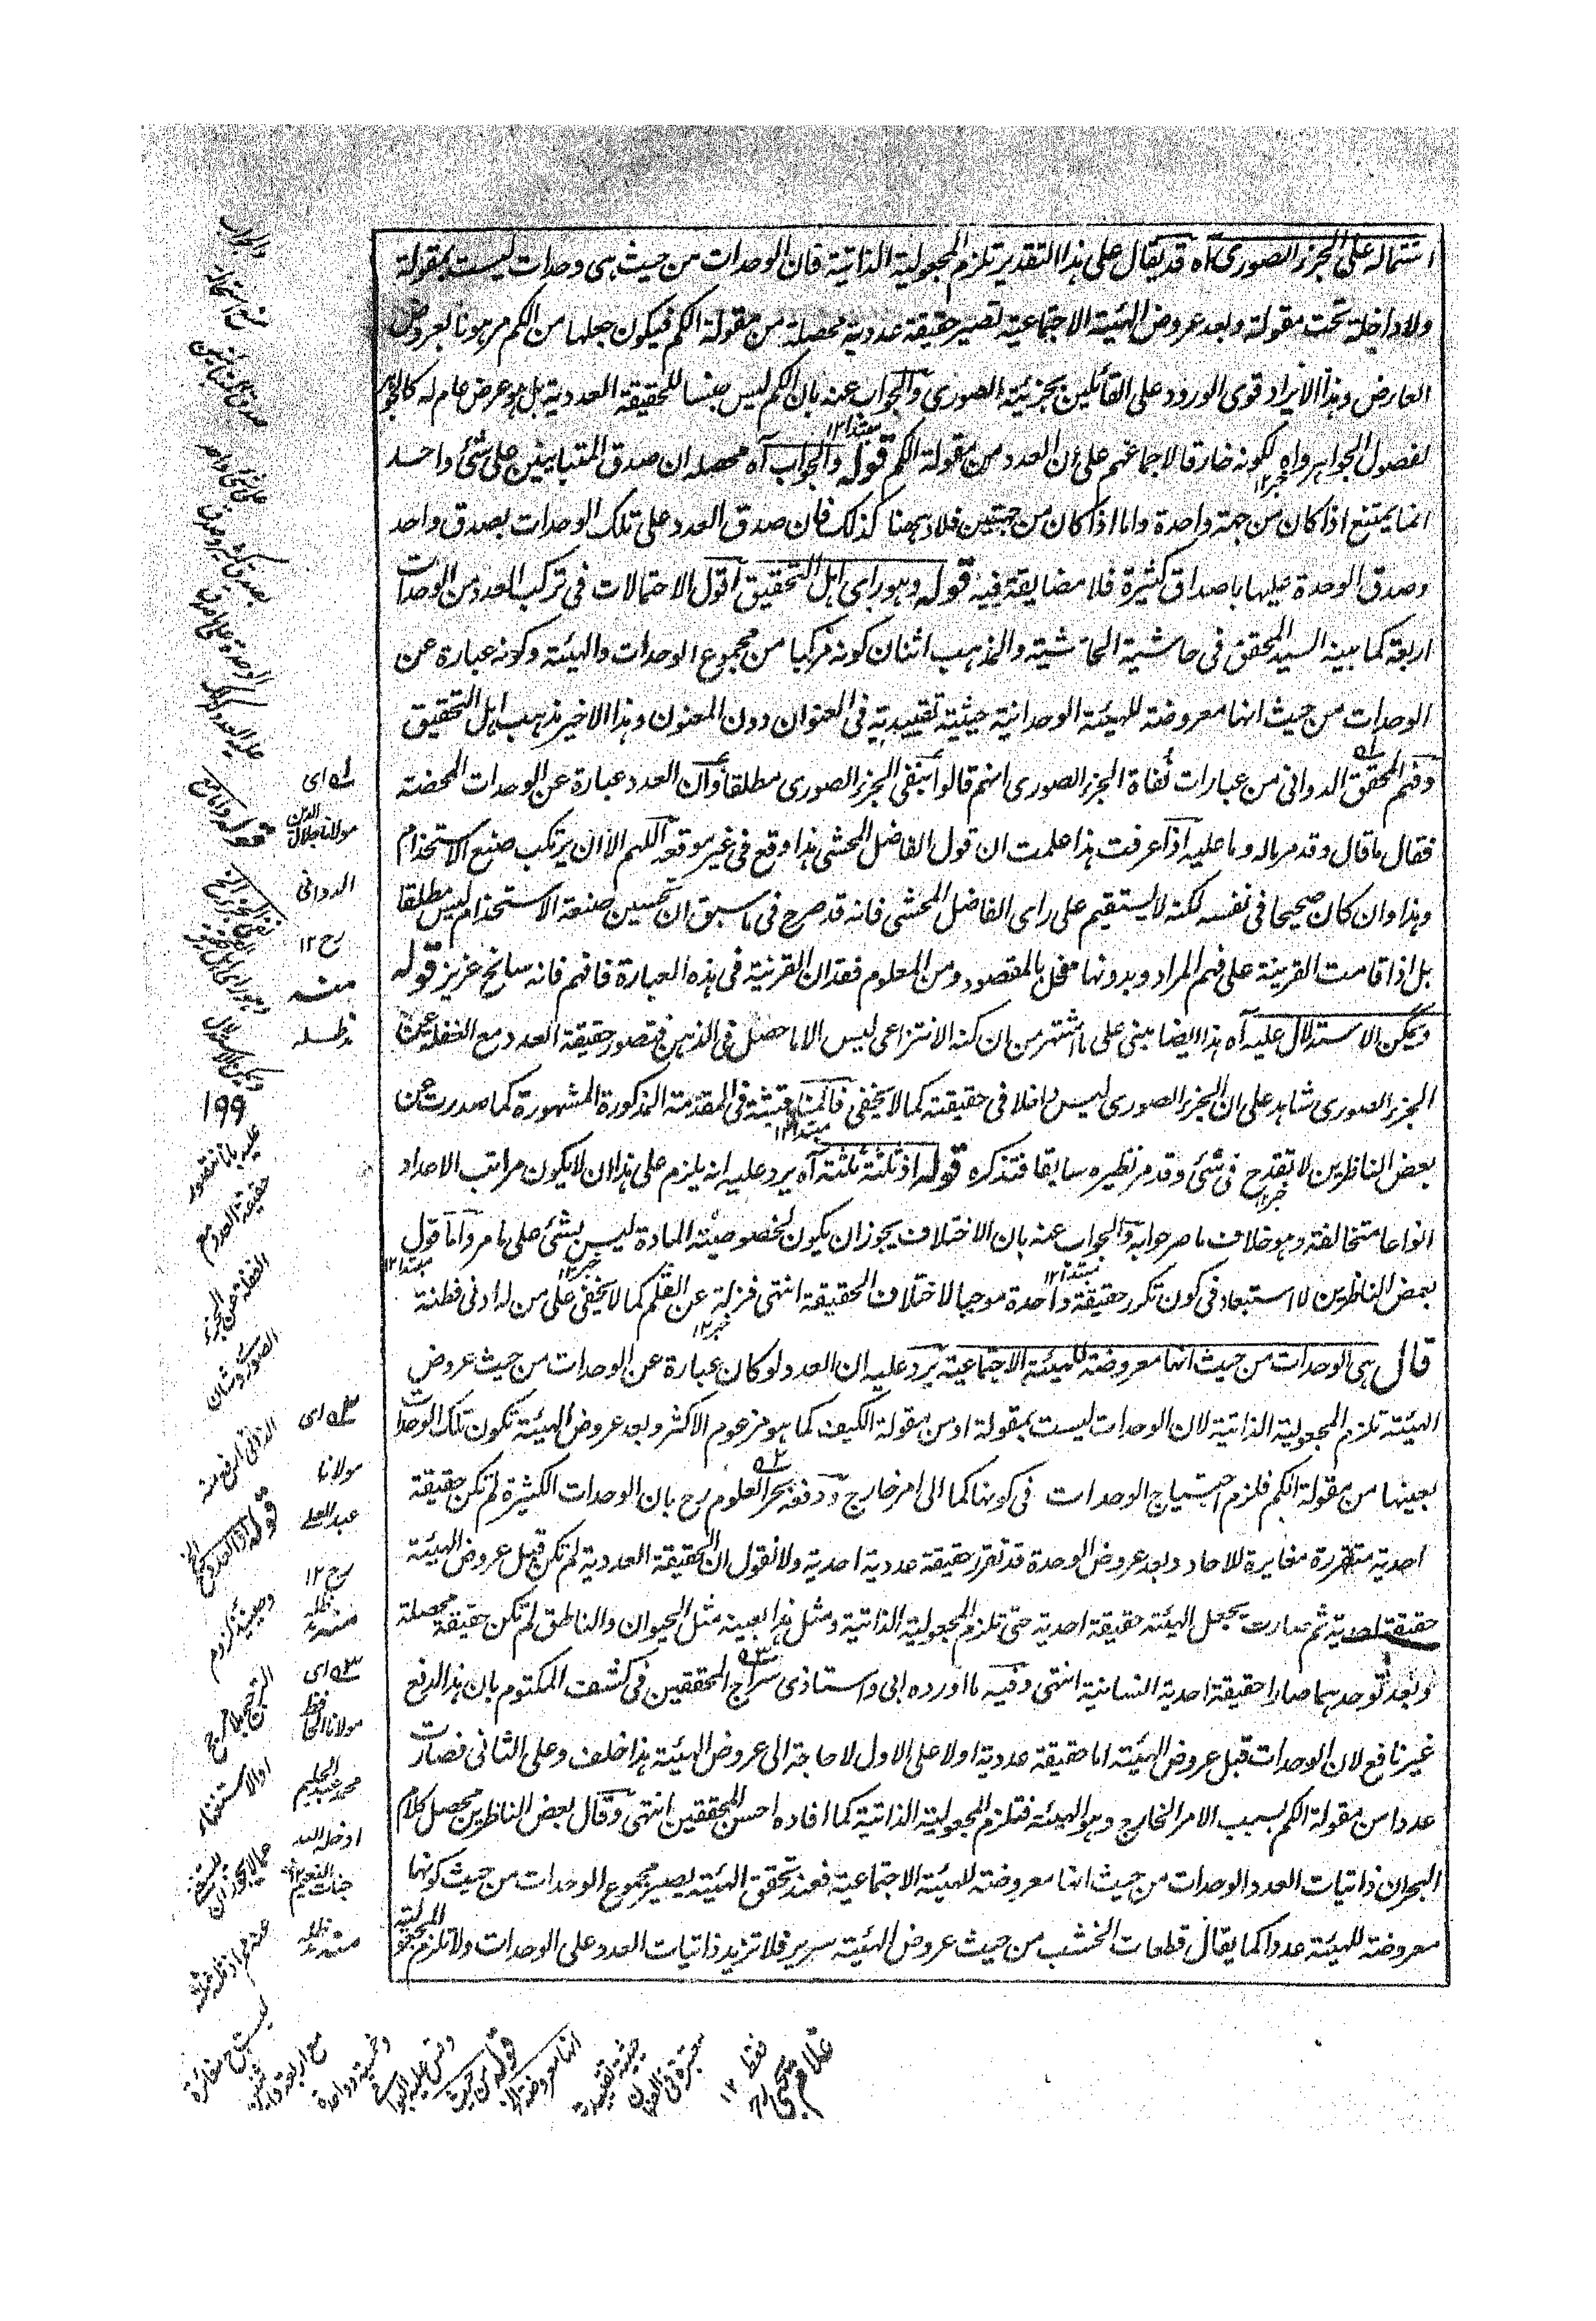 اشتماله على الجزء الصورى اه قد يقال على هذا التقدير تلزم المجعولية الذاتية فان الوحدات من حيث هى وحدات ليست بمقولة
ولا داخلة تحت مقولة وبعد عروض الهيئة الاجتماعية تصير حقيقة عددية محصلة من مقولة الكم فيكون جعلها من الكم مرهونا بعروض
العارض وهذا الايراد قوى الورود على القائلين بجزئية الصورى والجواب عنه بان الكم ليس جنسا للحقيقة العددية بل هو عرض عام له كالجوهر
لفصول الجواهر واه لكونه خارقا لاجماعهم على ان العدد من مقولة الكم قوله والجواب آه محصله ان صدق المتباينين على شئ واحد
انما يمتنع اذا كان من جهة واحدة واما اذا كان من جهتين فلا وههنا كذلك فان صدق العدد على تلك الوحدات بصدق واحد
وصدق الوحدة عليها باصداق كثيرة فلا مضايقة فيه قوله وهو راى اهل التحقيق اقول الاحتمالات فى تركب العدد من الوحدات
اربعة كما بينه السيد المحقق فى حاشية الحاشية والمذهب اثنان كونه مركبا من مجموع الوحدات والهيئة وكونه عبارة عن
الوحدات من حيث انها معروضة للهيئة الوحدانية حيثية تقييدية فى العنوان دون المعنون وهذا الاخير مذهب اهل التحقيق
وفهم المحقق الدوانى من عبارات نفاة الجزء الصورى انهم قالوا بنفى الجزء الصورى مطلقا وان العدد عبارة عن الوحدات المحضة
فقال ما قال وقد مر ماله وما عليه اذا عرفت هذا علمت ان قول الفاضل المحشى هذا وقع فى غير موقعه اللهم الا ان يرتكب صنع الاستخذام
وهذا وان كان صحيحا فى نفسه لكنه لا يستقيم على راى الفاضل المحشى فانه قد صرح فى ما سبق ان تحسين صنعة الاستخذام ليس مطلقا
بل اذا قامت القرينة على فهم المراد وبدونها مخل بالمقصود ومن المعلوم فقدان القرينة فى هذه العبارة فافهم فانه سانح عزيز قوله
ويمكن الاستدلال عليه آه هذا ايضا مبنى على ما اشتهر من ان كنه الانتزاعى ليس الا ما حصل فى الذهن فتصور حقيقة العدد مع الغفلة عن
الجزء الصورى شاهد على ان الجزء الصورى ليس داخلا فى حقيقته كما لا يخفى فالمناقشة فى المقدمة المذكورة المشهورة كما صدرت عن
بعض الناظرين لا تقدح فى شئ وقد مر نظيره سابقا فتذكره قوله اذ ثلثة ثلثة آه يرد عليه انه يلزم على هذا ان لا يكون مراتب الاعداد
انواعا متخالفة وهو خلاف ما صرحوا به والجواب عنه بان الاختلاف يجوز ان يكون لخصوصية المادة ليس بشئ على ما مر واما قول
بعض الناظرين لا استبعاد فى كون تكرر حقيقة واحدة موجبا لاختلاف الحقيقة انتهى فزلة عن القلم كما لا يخفى على من له ادنى فطنة
قال هى الوحدات من حيث انها معروضة للهيئة الاجتماعية يرد عليه ان العدد لو كان عبارة عن الوحدات من حيث عروض
الهيئة تلزم المجعولية الذاتية لان الوحدات ليست بمقولة او من مقولة الكيف كما هو مزعوم الاكثر وبعد عروض الهيئة تكون تلك الوحدات
بعينها من مقولة الكم فلزم احتياج الوحدات فى كونها كما الى امر خارج ودفعه بحر العلوم رح بان الوحدات الكثيرة لم تكن حقيقة
احدية متقررة مغايرة للاحاد وبعد عروض الوحدة قد تقرر حقيقة عددية احدية ولا نقول ان الحقيقة العددية لم تكن قبل عروض الهيئة
حقيقة احدية ثم صارت بجعل الهيئة حقيقة احدية حتى تلزم المجعولية الذاتية ومثل هذا بعينه مثل الحيوان والناطق لم تكن حقيقة محصلة
وبعد توحدهما صارا حقيقة احدية انسانية انتهى وفيه ما اورده ابى واستاذى سراج المحققين فى كشف المكتوم بان هذا الدفع
غير نافع لان الوحدات قبل عروض الهيئة اما حقيقة عددية اولا على الاول لا حاجة الى عروض الهيئة هذا خلف وعلى الثانى فصارت
عددا من مقولة الكم بسبب الامر الخارج وهو الهيئة فتلزم المجعولية الذاتية كما افاده احسن المحققين انتهى وقال بعض الناظرين محصل كلام
البحر ان ذاتيات العدد الوحدات من حيث انها معروضة للهيئة الاجتماعية فعند تحقق الهيئة يصير مجموع الوحدات من حيث كونها
معروضة للهيئة عددا كما يقال قطعات الخشب من حيث عروض الهيئة سرير فلا تزيد ذاتيات العدد على الوحدات ولا تلزم المجعولية
له اى
مولانا جلال الدين
الدوانى
رح ١٢
منه
مد ظله
١٩٩
له اى
مولانا
عبد العلى
رح ١٢
منه مد ظله
له اى
مولانا الحافظ
محمد عبد الحليم
ادخله الله
جنات النعيم ١٢
منه مد ظله
عليه بانا نتصور
حقيقة العدد مع
الغفلة عن الجزء
الصورى وشان
فقط ١٢